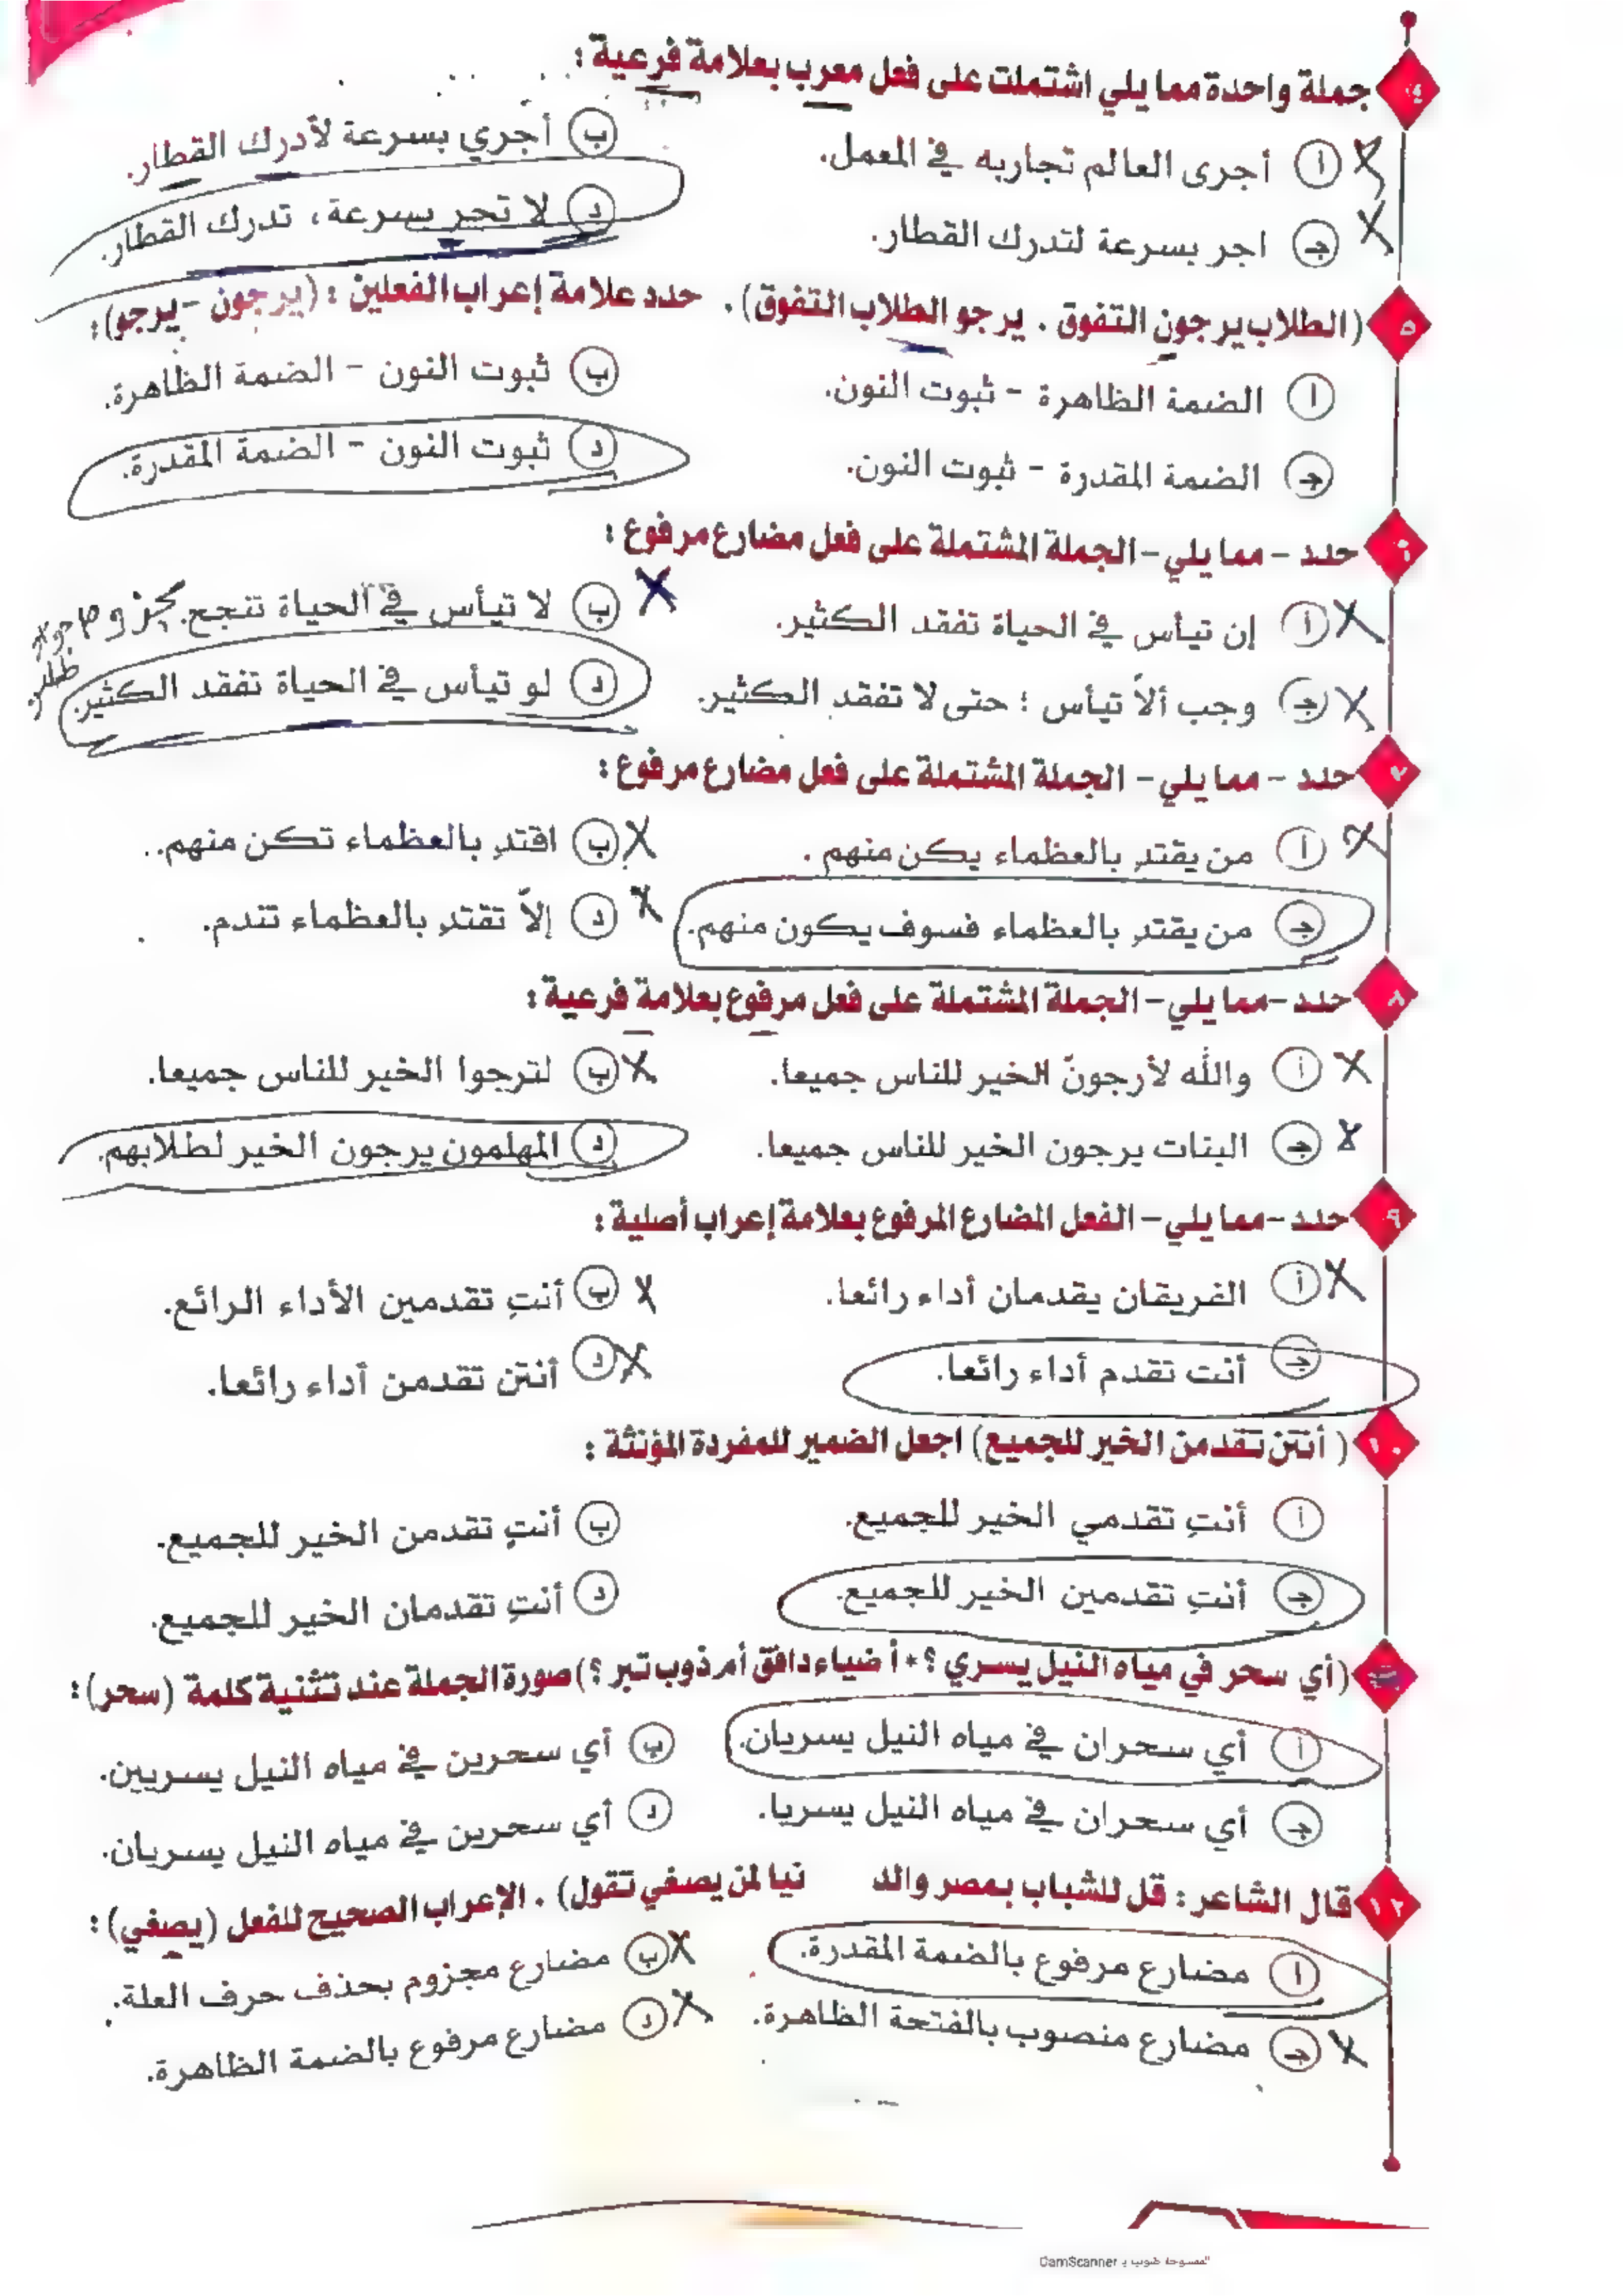 ٤ جملة واحدة مما يلي اشتملت على فعل معرب بعلامة فرعية :
أ أجرى العالم تجاربه في المعمل. ب أجري بسرعة لأدرك القطار.
جـ اجر بسرعة لتدرك القطار. د لا تجر بسرعة، تدرك القطار.
٥ (الطلاب يرجون التفوق . يرجو الطلاب التفوق) . حدد علامة إعراب الفعلين : (يرجون - يرجو) :
أ الضمة الظاهرة - ثبوت النون. ب ثبوت النون - الضمة الظاهرة.
جـ الضمة المقدرة - ثبوت النون. د ثبوت النون - الضمة المقدرة.
٦ حدد - مما يلي - الجملة المشتملة على فعل مضارع مرفوع :
أ إن تيأس في الحياة تفقد الكثير. ب لا تيأس في الحياة تنجح.
جـ وجب ألاّ تيأس ؛ حتى لا تفقد الكثير. د لو تيأس في الحياة تفقد الكثير.
٧ حدد - مما يلي - الجملة المشتملة على فعل مضارع مرفوع :
أ من يقتدِ بالعظماء يكن منهم . ب اقتدِ بالعظماء تكن منهم..
جـ من يقتدِ بالعظماء فسوف يكون منهم. د إلاّ تقتدِ بالعظماء تندم.
٨ حدد - مما يلي - الجملة المشتملة على فعل مرفوع بعلامة فرعية :
أ والله لأرجونّ الخير للناس جميعا. ب لترجوا الخير للناس جميعا.
جـ البنات يرجون الخير للناس جميعا. د المهلمون يرجون الخير لطلابهم.
٩ حدد - مما يلي - الفعل المضارع المرفوع بعلامة إعراب أصلية :
أ الفريقان يقدمان أداء رائعا. ب أنتِ تقدمين الأداء الرائع.
جـ أنت تقدم أداء رائعا. د أنتن تقدمن أداء رائعا.
١٠ ( أنتن تقدمن الخير للجميع) اجعل الضمير للمفردة المؤنثة :
أ أنتِ تقدمي الخير للجميع. ب أنتِ تقدمن الخير للجميع.
جـ أنتِ تقدمين الخير للجميع. د أنتِ تقدمان الخير للجميع.
(أي سحر في مياه النيل يسري ؟ * أ ضياء دافق أم ذوب تبر ؟) صورة الجملة عند تثنية كلمة (سحر) :
أ أي سحران في مياه النيل يسريان. ب أي سحرين في مياه النيل يسريين.
جـ أي سحران في مياه النيل يسريا. د أي سحرين في مياه النيل يسريان.
١٢ قال الشاعر : قل للشباب بمصر والد نيا لمن يصغي تقول) . الإعراب الصحيح للفعل (يصغي) :
أ مضارع مرفوع بالضمة المقدرة. ب مضارع مجزوم بحذف حرف العلة.
جـ مضارع منصوب بالفتحة الظاهرة. د مضارع مرفوع بالضمة الظاهرة.
الممسوحة ضوئيا بـ CamScanner